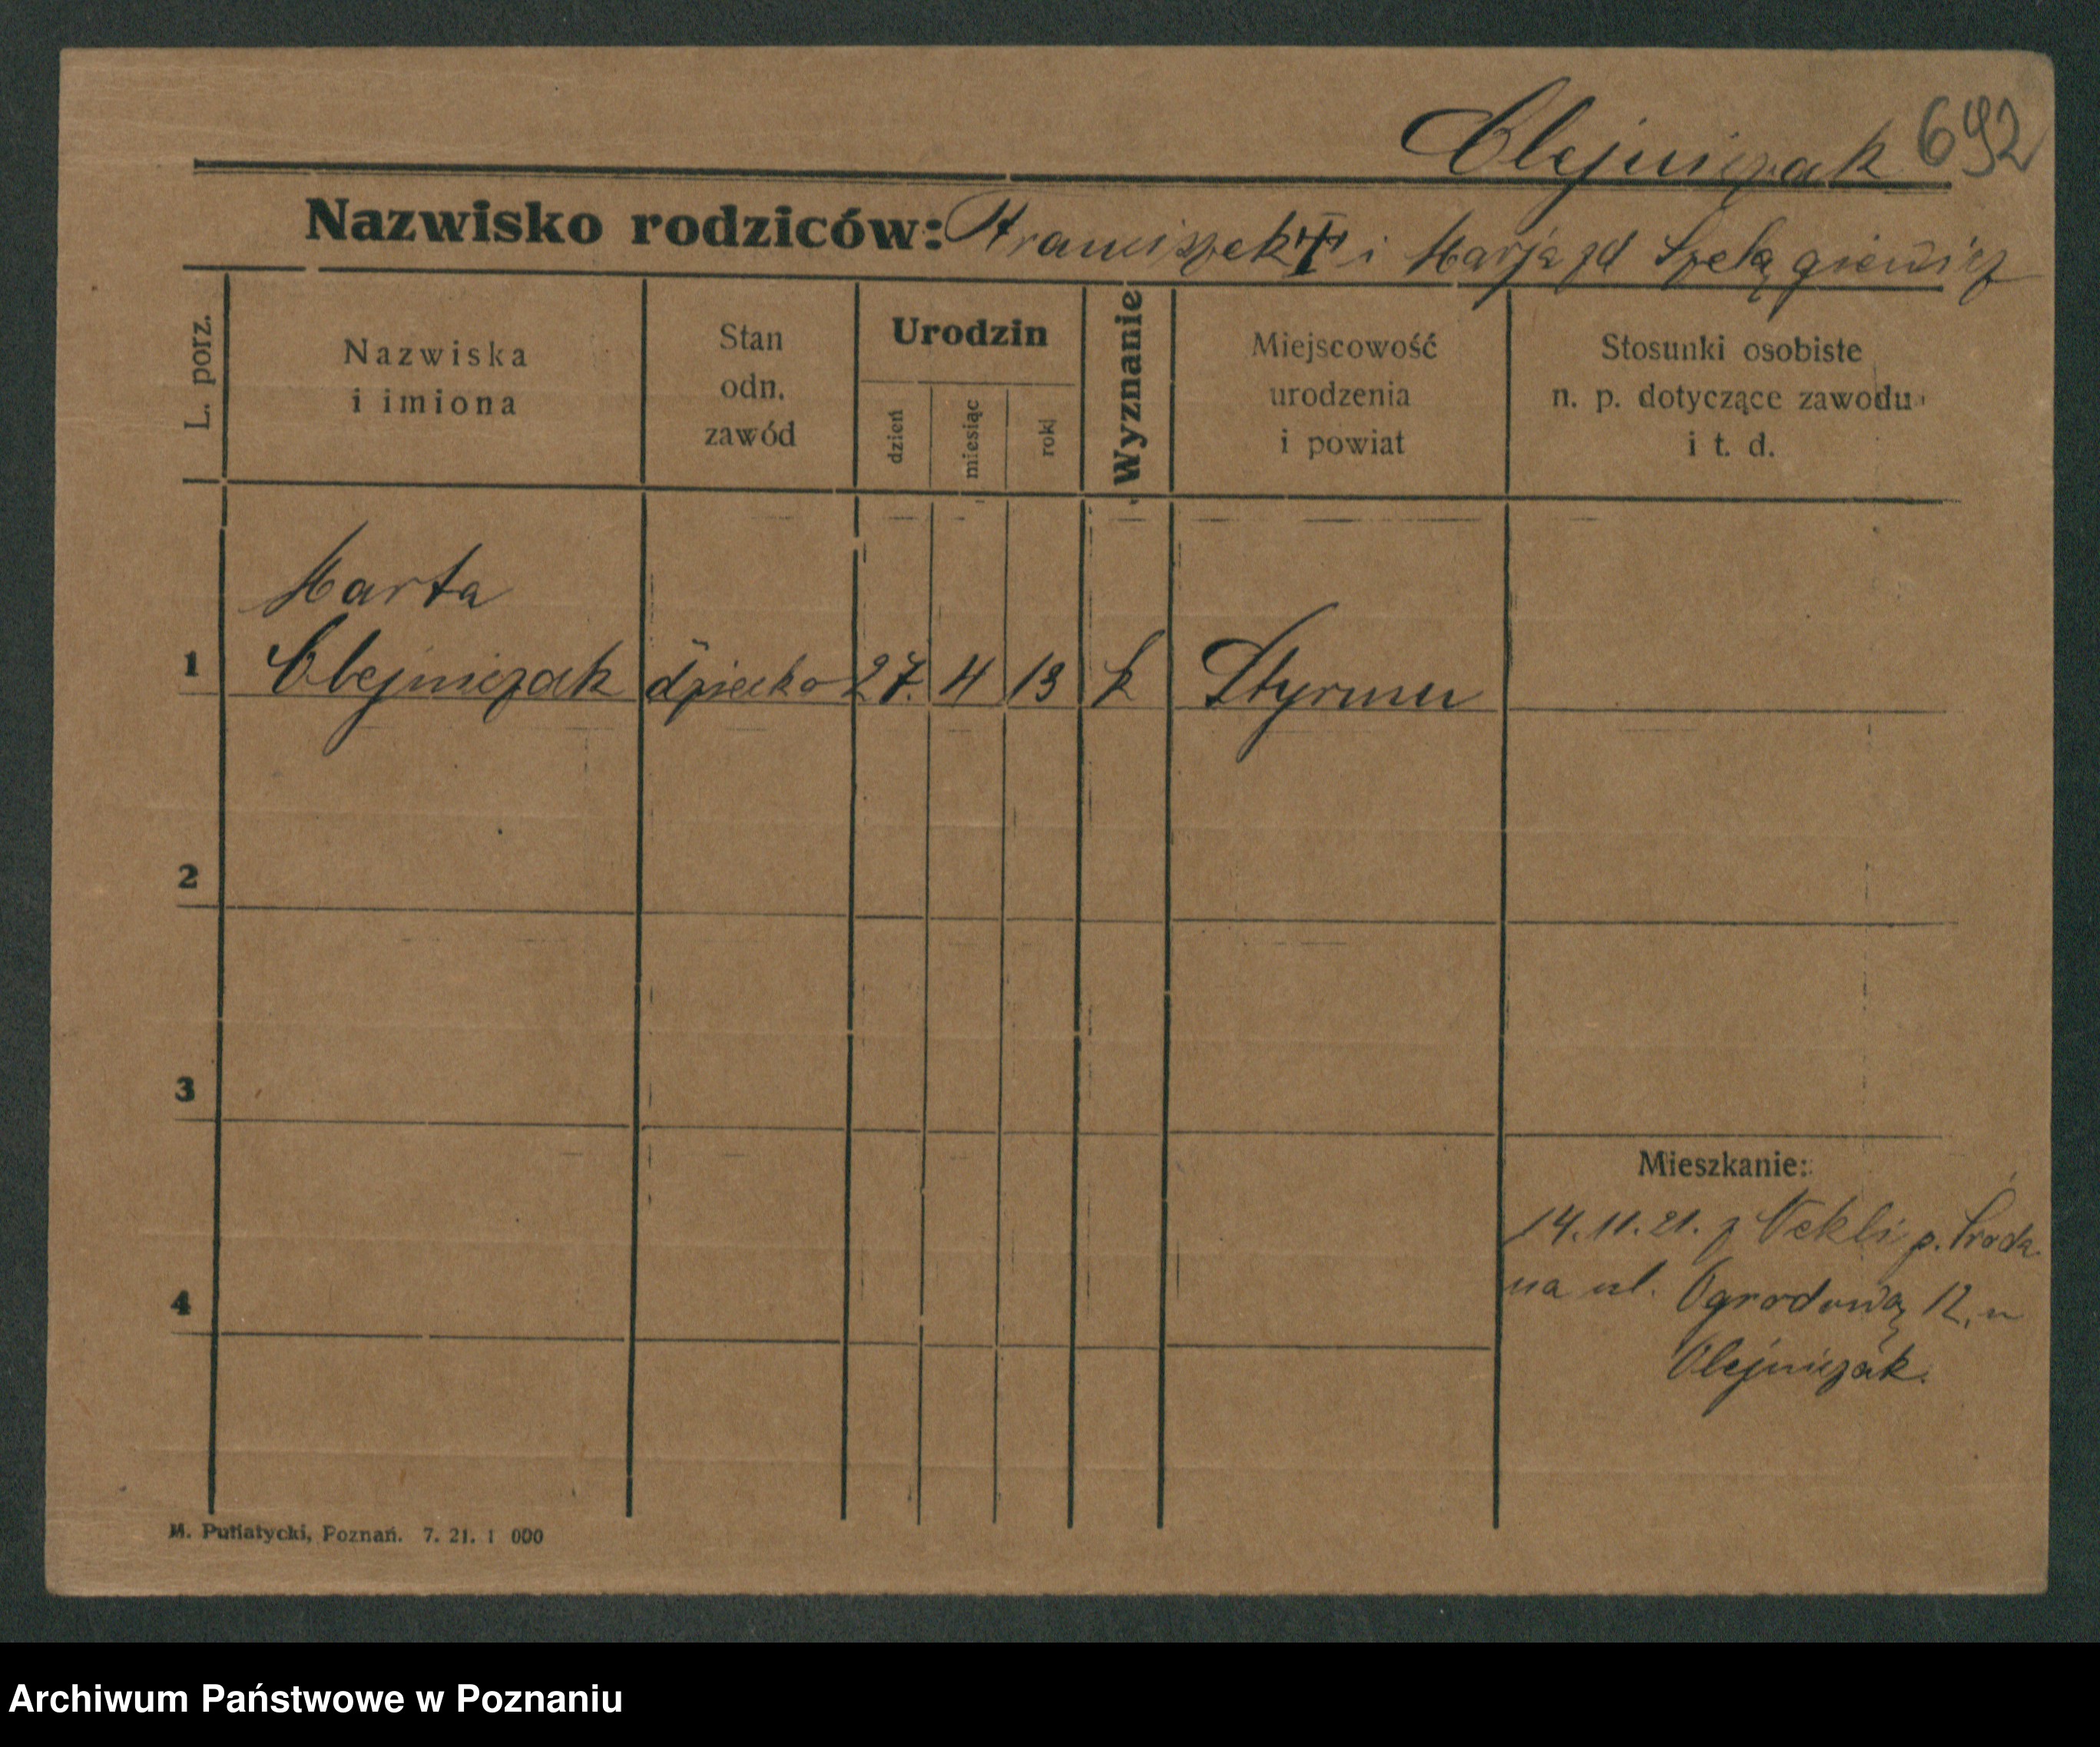 Olejniczak 692
Nazwisko rodziców: Franciszek i Marja zd Szelągiewicz
L. porz.
Nazwiska
i imiona
Stan
odn.
zawód
Urodzin
dzień
miesiąc
rok
Wyznanie
Miejscowość
urodzenia
i powiat
Stosunki osobiste
n. p. dotyczące zawodu
i t. d.
Marta
1 Olejniczak dziecko 27. 4 13 k
2
3
4
Mieszkanie:
14.11.21. z Nekli p. Środa
na ul. Ogrodową 12, u
Olejniczak.
M. Putiatycki, Poznań. 7. 21. 1 000
Archiwum Państwowe w Poznaniu